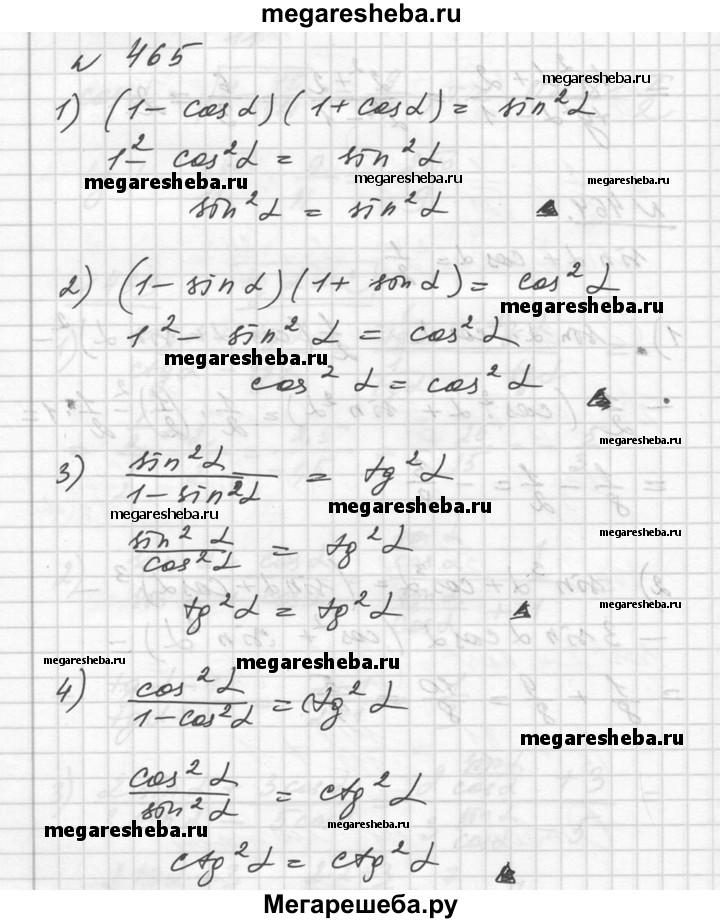 megaresheba.ru
№ 465
megaresheba.ru
1) (1 - cos α)(1 + cos α) = sin² α
1² - cos² α = sin² α
megaresheba.ru megaresheba.ru megaresheba.ru
sin² α = sin² α ▲
2) (1 - sin α)(1 + sin α) = cos² α
megaresheba.ru
1² - sin² α = cos² α
megaresheba.ru
cos² α = cos² α ▲
megaresheba.ru
3) sin² α / (1 - sin² α) = tg² α
megaresheba.ru
megaresheba.ru
sin² α / cos² α = tg² α
megaresheba.ru
tg² α = tg² α ▲
megaresheba.ru
megaresheba.ru megaresheba.ru
4) cos² α / (1 - cos² α) = ctg² α
megaresheba.ru
cos² α / sin² α = ctg² α
megaresheba.ru megaresheba.ru
ctg² α = ctg² α ▲
Мегарешеба.ру